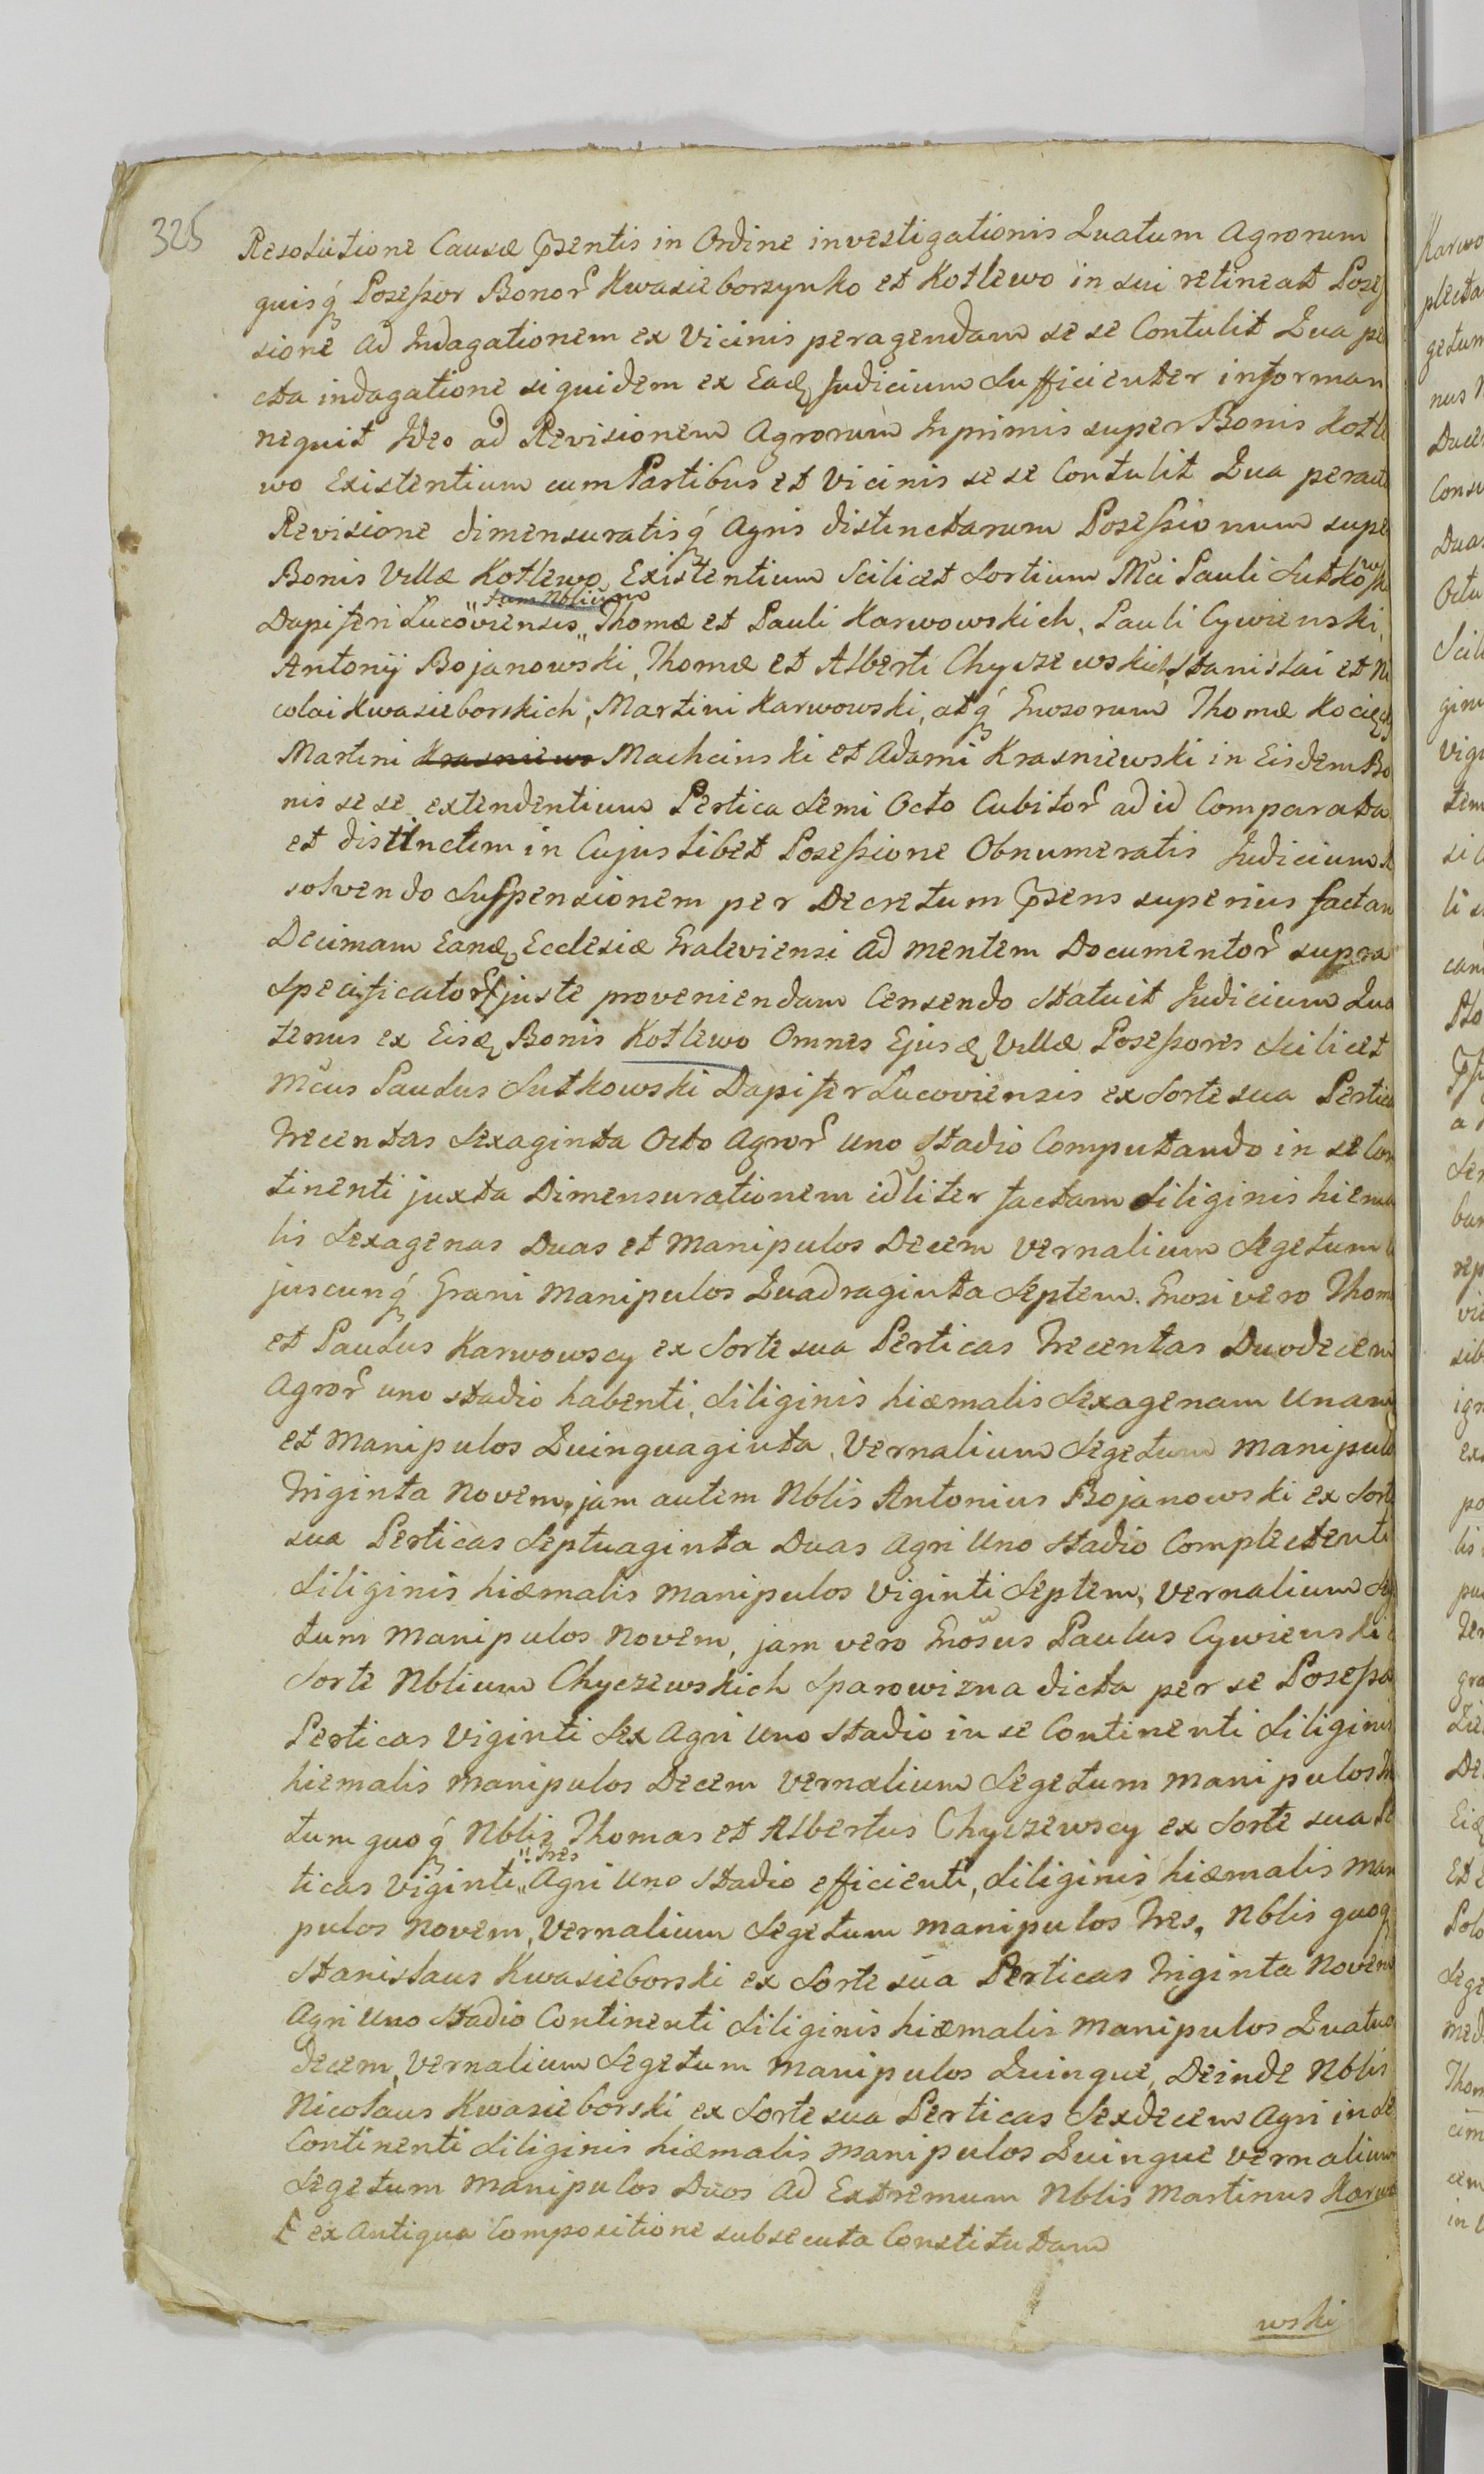 325
Resolutione Causæ Psentis in Ordine investigationis Quatum Agrorum
quisq́ Poseſsor Bonor Kwasieborzynko et Kotlewo in sui retineat Poseſ
sione ad Indagationem ex Vicinis peragendam se se Contulit Qua pe
cta indagatione siquidem ex Ead Judicium Sufficienter informari
nequit Ideo ad Revisionem Agrorum Inprimis super Bonis Kotle
wo Existentium cum Partibus et Vicinis se se Contulit Qua peract
Revisione dimensuratisq́ Agris distinctarum Poseſsionum supe
Bonis Villæ Kotlewo Existentium Scilicet Sortium Mci Pauli Sutkowsk
tum Nblium
Dapiferi Lucoviensis „ Thomæ et Pauli Karwowskich, Pauli Cywienski,
Antonij Bojanowski, Thomæ et Alberti Chyczewskich, Stanislai et Ni
colai Kwasieborskich, Martini Karwowski, atq́ Gnosorum Thomæ
Martini Krasniews Machcinski et Adami Krasniewski in Eisdem Bo
nis se se extendentium Pertica Semi Octo Cubitor ad id Comparata
et distinctim in Cujuslibet Poseſsione Obnumeratis Judicium
solvendo Suspensionem per Decretum Psens superius factam
Decimam Eand Ecclesiæ Graleviensi ad mentem Documentor supra
Specificator juste proveniendam Censendo Statuit Judicium Qua
tenus ex Eisd Bonis Kotlewo Omnes Ejusd Villæ Poseſsores Scilicet
Mcus Paulus Sutkowski Dapifer Lucoviensis ex Sorte sua Pertica
Trecentas Sexaginta Octo Agror uno Stadio Computando in se Con
tinenti juxta Dimensurationem idliter factam Siliginis hiema
lis Sexagenas Duas et Manipulos Decem Vernalium Segetum
juscunq́ Grani Manipulos Quadraginta Septem. Gnosi vero Thom
et Paulus Karwowscy ex Sorte sua Perticas Trecentas Duodecem
Agror uno stadio habenti, Siliginis hiæmalis Sexagenam Unam
et Manipulos Quinquaginta, Vernalium Segetum Manipulo
Triginta Novem, jam autem Nblis Antonius Bojanowski ex Sorte
sua Perticas Septuaginta Duas Agri Uno Stadio Complectenti
Siliginis hiæmalis Manipulos Viginti Septem, Vernalium Se
tum Manipulos Novem, jam vero Gnosus Paulus Cywienski
Sorte Nblium Chyczewskich Sparowizna dicta per se Poseſsa
Perticas Viginti Sex Agri Uno Stadio in se Continenti Siliginis
hiemalis Manipulos Decem Vernalium Segetum Manipulos
tum quoq́ Nblis Thomas et Albertus Chyczewscy ex Sorte sua
Tres
ticas Viginti „ Agri Uno Stadio efficienti, Siliginis hiæmalis Man
pulos Novem, Vernalium Segetum Manipulos Tres, Nblis quoq
Stanislaus Kwasieborski ex Sorte sua Perticas Triginta Novem
Agri Uno Stadio Continenti Siliginis hiæmalis Manipulos Quatuo
decem, Vernalium Segetum Manipulos Quinque, Deinde Nblis
Nicolaus Kwasieborski ex Sorte sua Perticas Sexdecem Agri in se
Continenti Siliginis hiæmalis Manipulos Quinque Vernalium
Segetum Manipulos Duos ad Extremum Nblis Martinus Karwo
ex Antiqua Compositione subsecuta Constitutam
wski